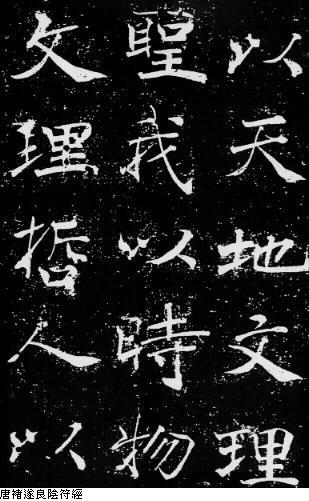 以天地文理
聖我以時物
文理哲人以
唐褚遂良陰符經